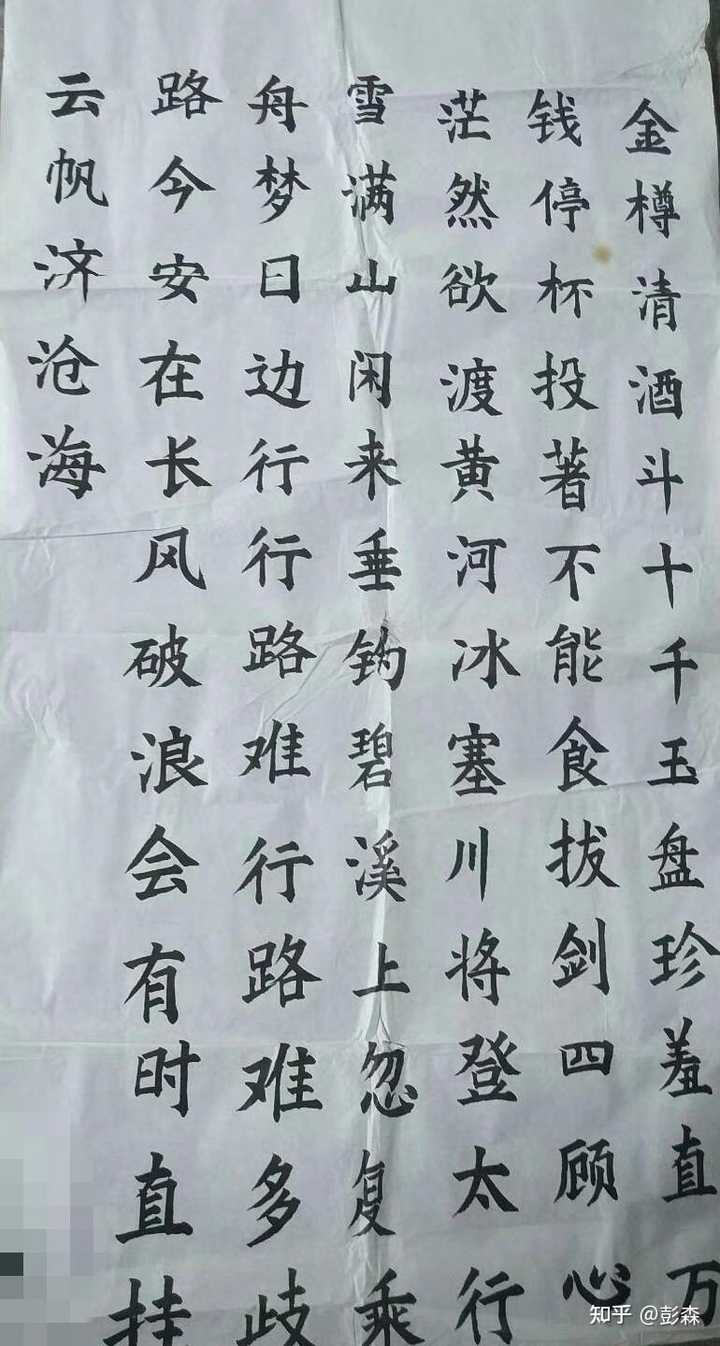 金樽清酒斗十千玉盘珍羞直万
钱停杯投著不能食拔剑四顾心
茫然欲渡黄河冰塞川将登太行
雪满山闲来垂钓碧溪上忽复乘
舟梦日边行行路难行路难多歧
路今安在长风破浪会有时直挂
云帆济沧海
知乎 @彭森